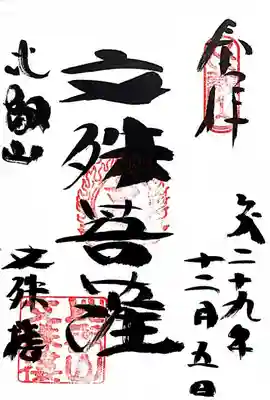 奉拝
平成二十九年
十二月五日
文殊菩薩
比叡山
文殊楼